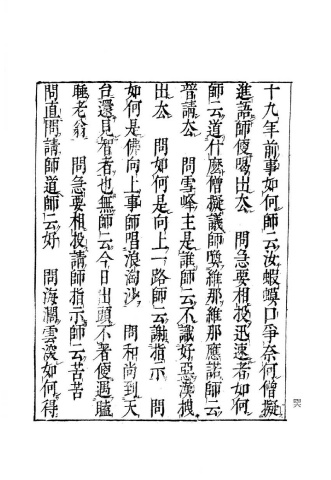 十九年前事如何師云汝蝦蟆口爭奈何僧擬
進語師便喝出去　問急要相投迅速者如何
師云道什麼僧擬議師喚維那維那應諾師云
普請去　問雪峰主是誰師云不識好惡漢拽
出去　問如何是向上一路師云謝指示　問
如何是佛向上事師唱浪淘沙　問和尚到天
台還見智者也無師云今日出頭不著便遇瞌
睡老翁　問急要相投請師指示師云苦苦
問直問請師道師云好　問海濶雲深如何得